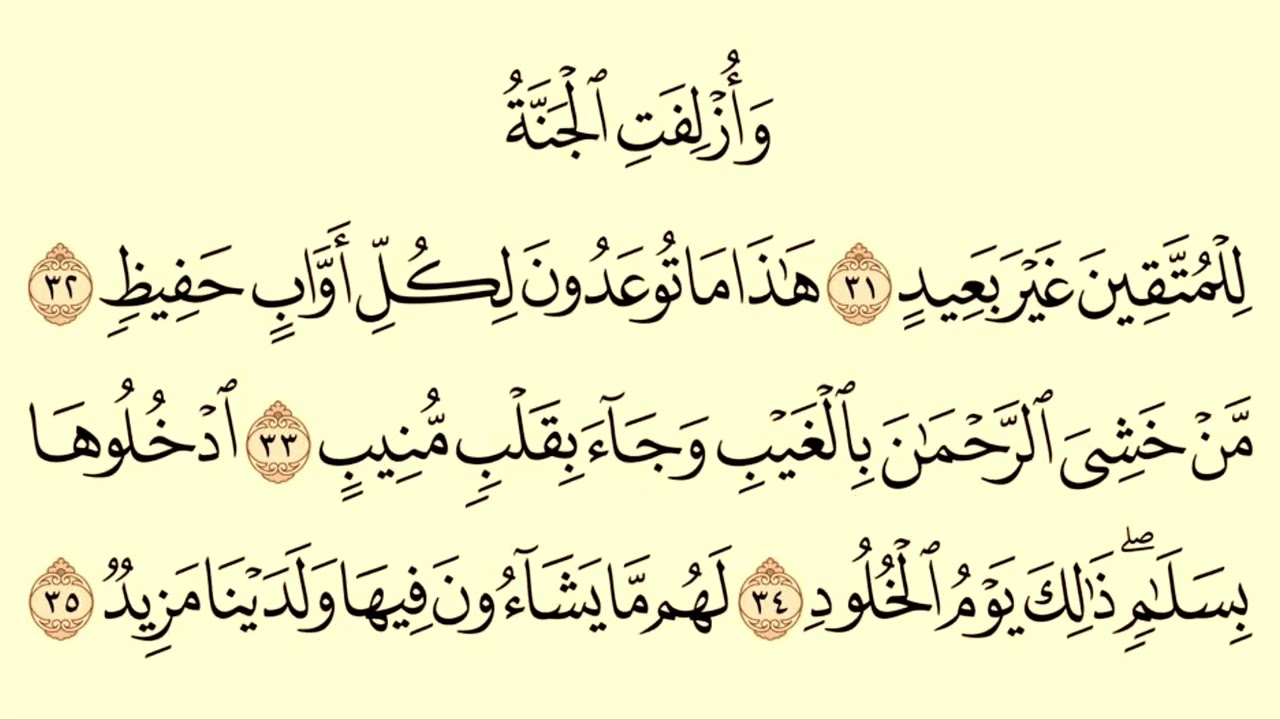 وَأُزْلِفَتِ ٱلْجَنَّةُ
لِلْمُتَّقِينَ غَيْرَ بَعِيدٍ ٣١ هَـٰذَا مَا تُوعَدُونَ لِكُلِّ أَوَّابٍ حَفِيظٍ ٣٢
مَّنْ خَشِىَ ٱلرَّحْمَـٰنَ بِٱلْغَيْبِ وَجَآءَ بِقَلْبٍ مُّنِيبٍ ٣٣ ٱدْخُلُوهَا
بِسَلَـٰمٍ ۖ ذَٰلِكَ يَوْمُ ٱلْخُلُودِ ٣٤ لَهُم مَّا يَشَآءُونَ فِيهَا وَلَدَيْنَا مَزِيدٌ ٣٥